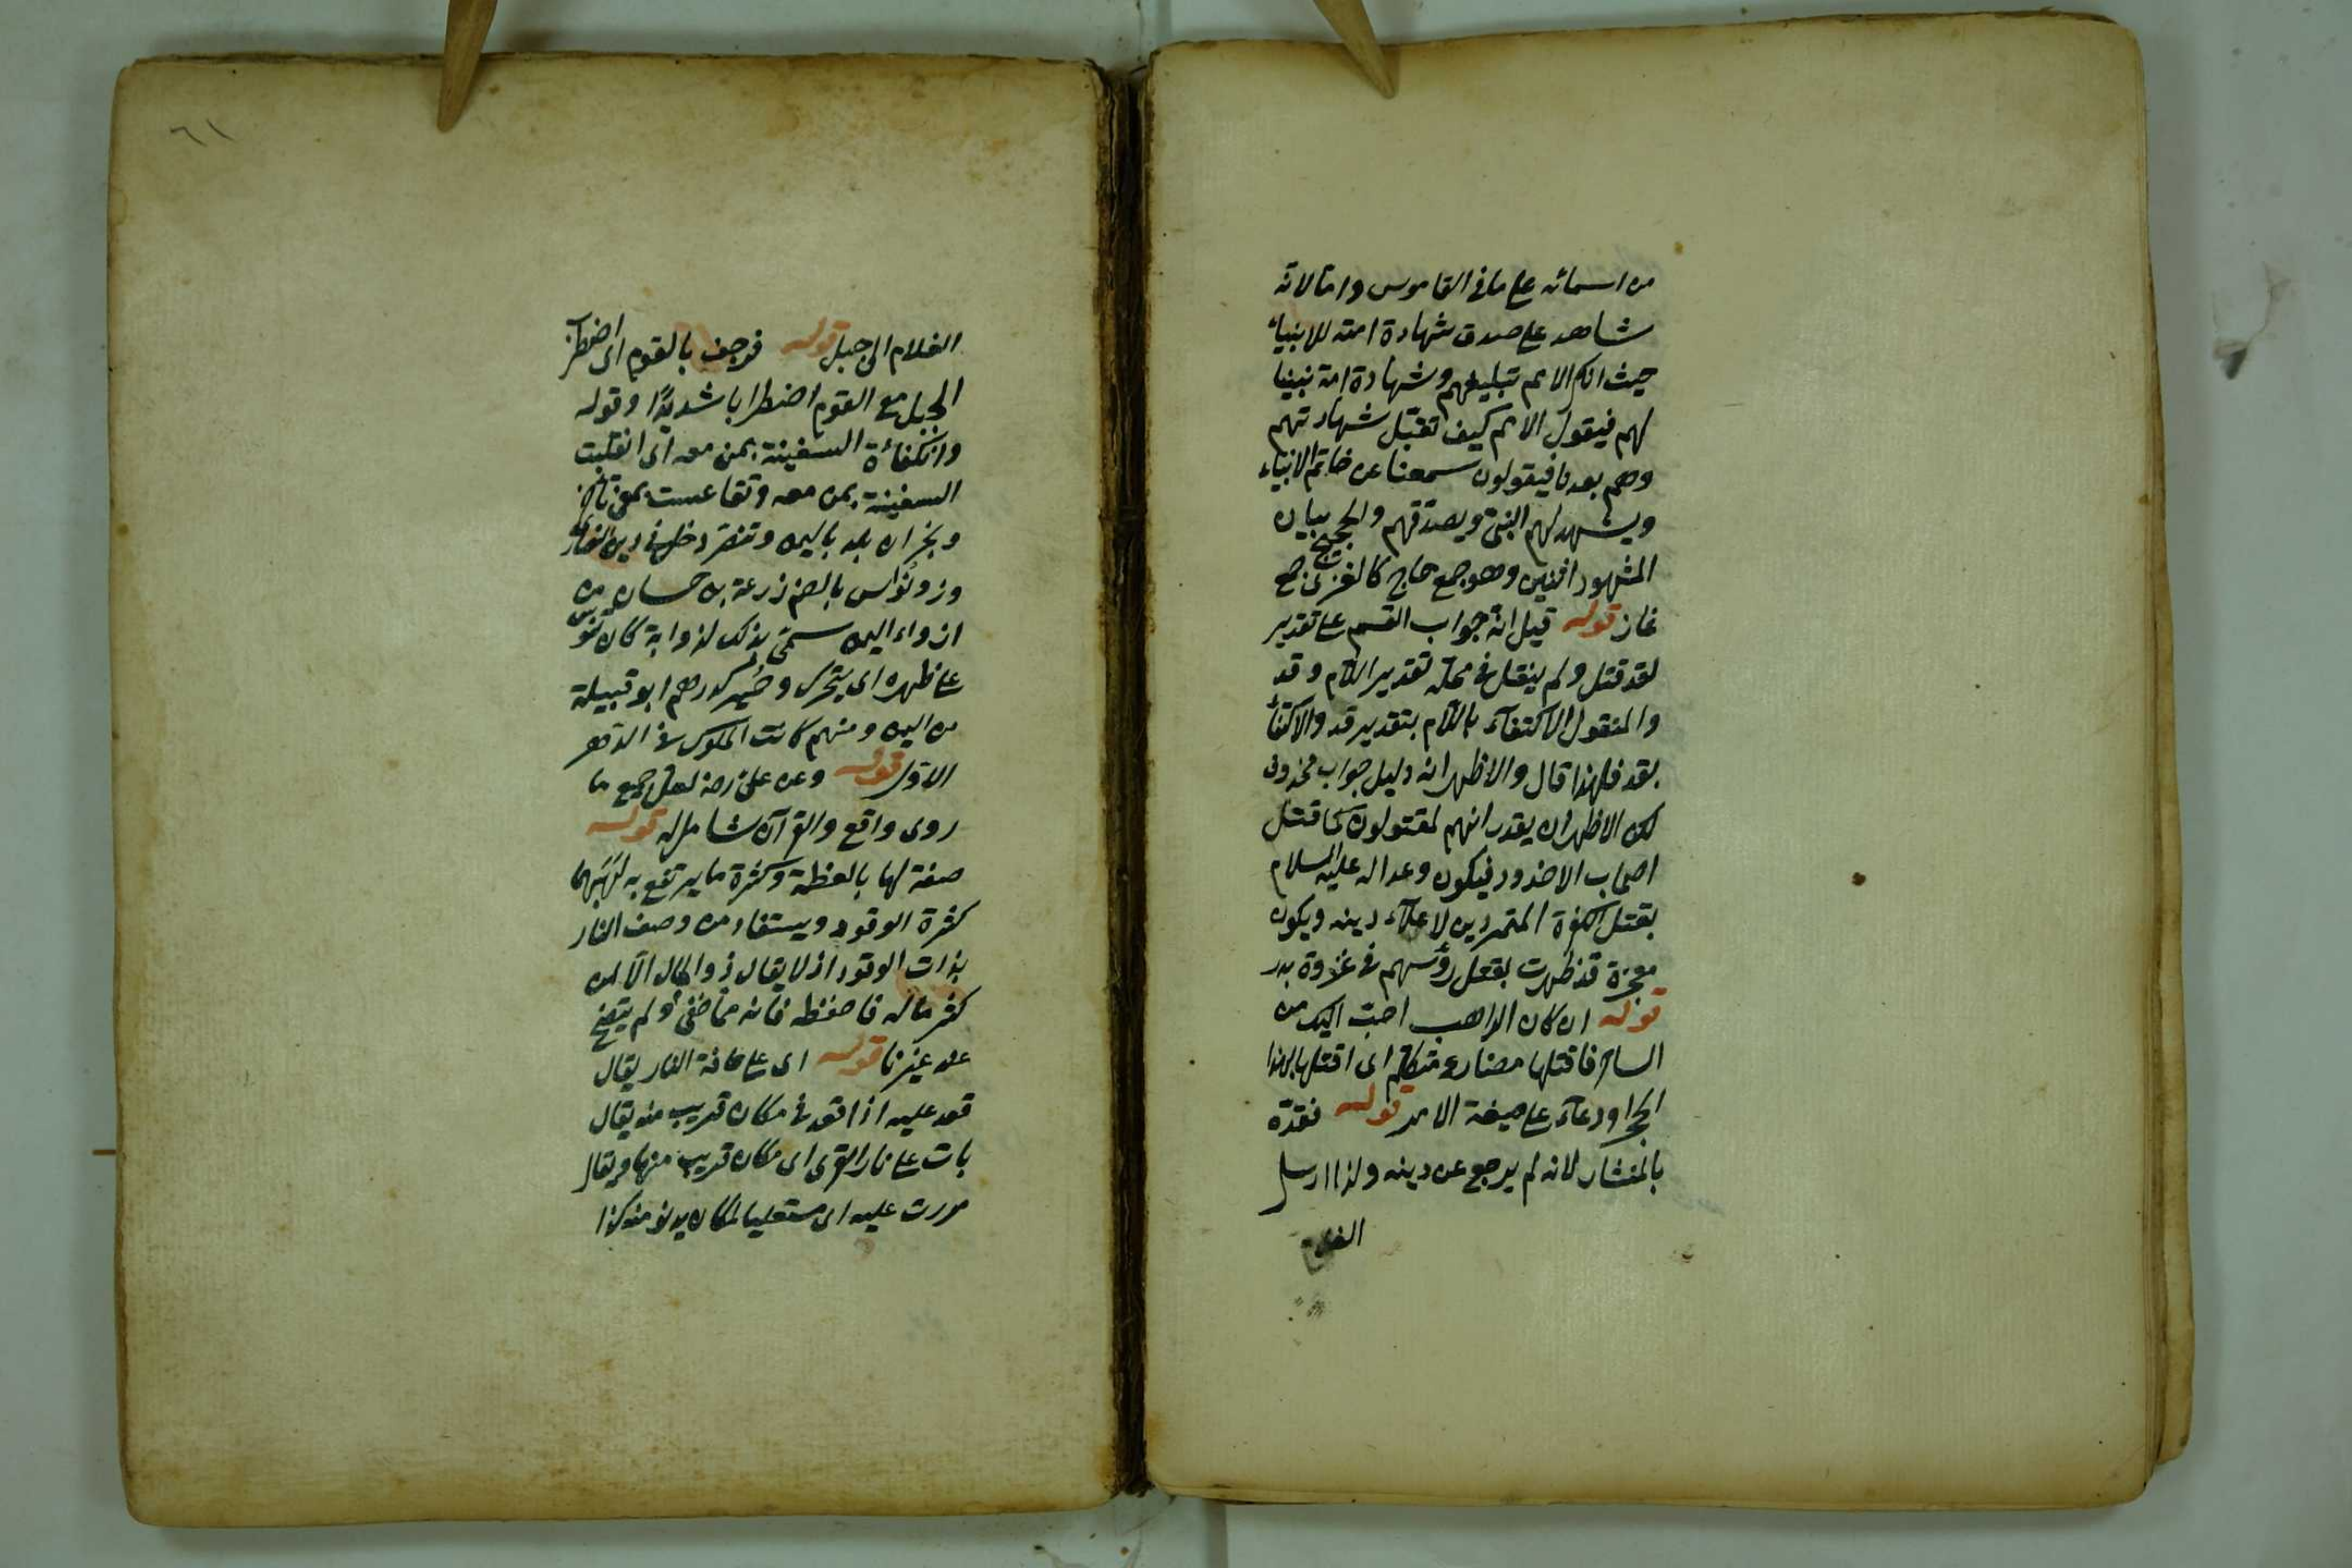 من اسمائه على ما في القاموس واما لانه
شاهد على صدق شهادة امته للانبياء
حيث انكر الامم تبليغهم وشهادة امة نبينا
لهم فيقول الامم كيف تقبل شهادتهم
وهم بعدنا فيقولون سمعنا من خاتم الانبياء
ويشهد لهم النبي ويصدقهم والحجيج ببيان
المشهود افنين وهو جمع حاج كالغزى جمع
غاز قوله قيل انه جواب القسم على تقدير
لقد قتل ولم ينقل في محله تقدير اللام وقد
والمنقول الاكتفاء باللام بتقدير قد والاكتفاء
بقد فلهذا قال والاظهر انه دليل جواب محذوف
لكن الاظهر ان يقدر انهم لمقتولون كما قتل
اصحاب الاخدود فيكون وعدا له عليه السلام
بقتل الكفرة المتمردين لاعلاء دينه ويكون
معجزة قد ظهرت بقتل رؤسهم في غزوة بدر
قوله ان كان الراهب احب اليك من
الساحر فاقتلها مضارع متكلم اى اقتلها بهذا
الحجر او دعاء على صيغة الامر قوله فقده
بالمنشار لانه لم يرجع عن دينه ولذا ارسل
الغلام
٦١
الغلام الى جبل قوله فرجف بالقوم اى اضطرب
الجبل مع القوم اضطرابا شديدا وقوله
وانكفأة السفينة بمن معه اى انقلبت
السفينة بمن معه وتقاعست بمعنى تأخر
ونجران بلد باليمن وتنصر دخل في دين النصارى
وذو نواس بالضم زرعة بن حسان من
اذواء اليمن سمى بذلك لذوابة كان تنوس
على ظهره اى يتحرك وحمير كدرهم ابو قبيلة
من اليمن ومنهم كانت الملوك في الدهر
الاول قوله وعن على رضـ لعل جميع ما
روى واقع والقرآن شامل له قوله
صفة لها بالعظمة وكثرة ما يرتفع به لهبها
كثرة الوقود ويستفاد من وصف النار
بذات الوقود اذ لا يقال ذو المال الا لمن
كثر ماله فاحفظه فانه مما خفى ولم يتضح
عند غيرنا قوله اى على حافة النار يقال
قعد عليه اذا قعد في مكان قريب منه يقال
بات على نار القرى اى مكان قريب منها ويقال
مررت عليه اى مستعليا لمكان يدنو منه كذا